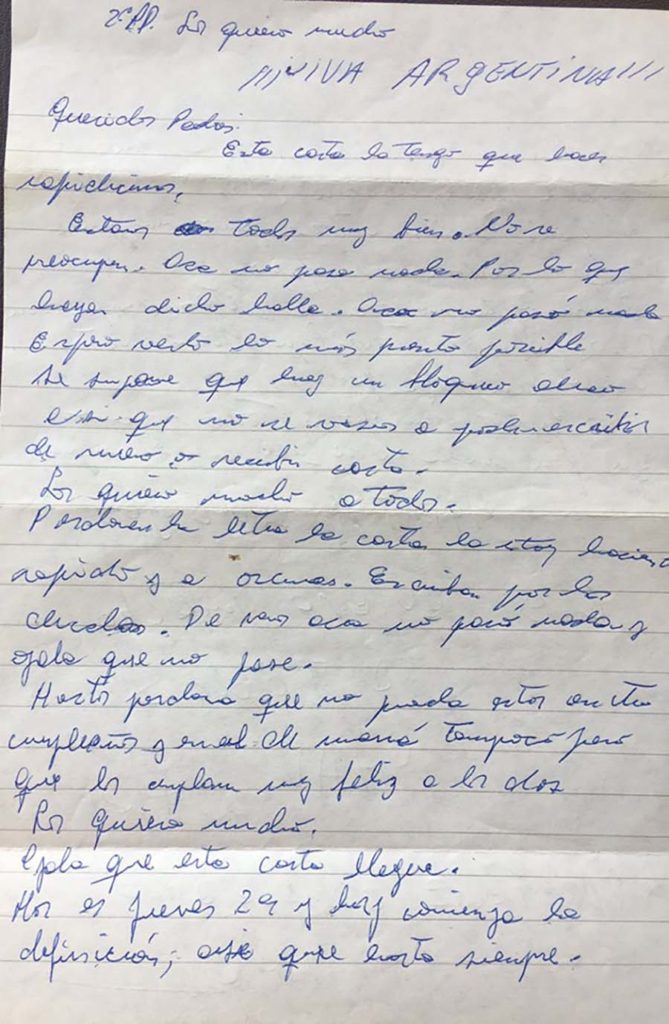 2º P.P. Los quiero mucho
¡¡¡VIVA ARGENTINA!!!
Queridos Padres:
Esta carta la tengo que hacer
rapidicimo,
Estamos todos muy bien. No se
preocupen. Aca no pasa nada. Por lo que
hayan dicho halla. Aca no pasó nada
Espero verlos lo más pronto posible
Se supone que hay un bloqueo aereo
asi que no se vamos a poder escribir
de nuevo o recibir carta.
Los quiero mucho a todos.
Perdonen la letra la carta la estoy haciendo
rapido y a oscuras. Escriban por las
dudas. De veras aca no pasó nada y
ojala que no pase.
perdona que no pueda estar en tu
cumpleaños y en el de mamá tampoco pero
que los cumplan muy feliz a los dos
Los quiero mucho.
Ojala que esta carta llegue.
Hoy es jueves 29 y hoy comienza la
definición, asi que hasta siempre.